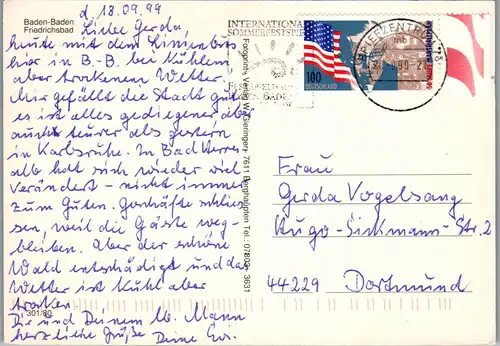 Baden-Baden
Friedrichsbad
d. 18.09.99
Liebe Gerda,
heute mit dem Linienbus
hier in B.-B. bei kühlem
aber trockenem Wetter.
Mir gefällt die Stadt gut,
es ist alles gediegener aber
auch teurer als gestern
in Karlsruhe. In Bad Herren-
alb hat sich wieder viel
verändert - nicht immer
zum Guten. Geschäfte schlies-
sen, weil die Gäste weg-
bleiben. Aber der schöne
Wald entschädigt und das
Wetter ist kühl aber
trocken.
Dir und Deinem lb. Mann
herzliche Grüße Deine Evi.
301/80
INTERNATIONALE
SOMMERFESTSPIELE
FESTSPIELHAUS
BADEN-BADEN
100
DEUTSCHLAND
BRIEFZENTRUM 76
Fotogr. u. Verlag W. Sieringer · 7611 Berghaupten Tel.: 07803-3631
Frau
Gerda Vogelsang
Hugo-Sickmann-Str. 2
44229 Dortmund